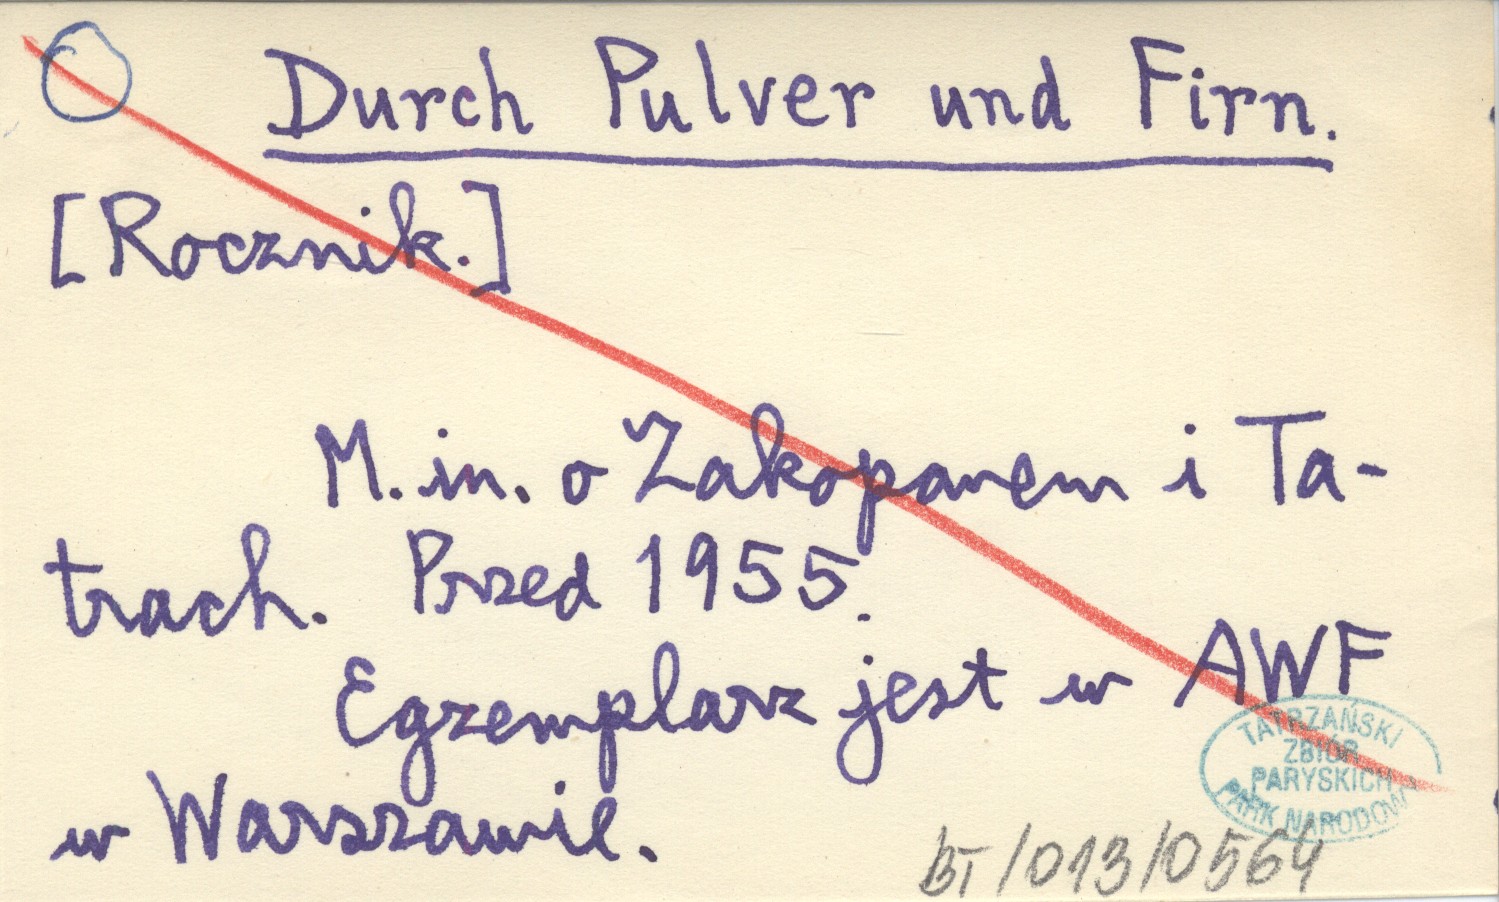 Durch Pulver und Firn.
[Rocznik.]
M. in. o Zakopanem i Ta-
trach. Przed 1955.
Egzemplarz jest w AWF
w Warszawie.
TATRZAŃSKI
ZBIÓR
PARYSKICH
PARK NARODOWY
BT/013/0564